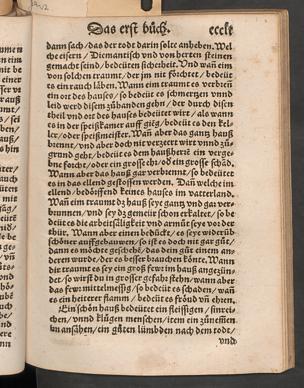 Das erst büch. eccle
dann sach / das der todt darin solte anheben. Wel
che eisern / Diemantisch vnd von herten steinen
gemacht seind / bedeüten sicherheit. Vnd wañ eim
von solchen traumt / der jm nit förchtet / bedeüt
es ein rauch läben. Wann eim traumt es verbrenn
ein ort des hauses / so bedeüt es schmertzen vnnd
leid werd disem zühanden gehn / der durch disen
theil vnd ort des hauses bedeütet wirt / als wann
es in der speißkamer auff gieg / bedeüt es den kel-
ler / oder speißmeister. Wañ aber das gantz hauß
brennt / vnd aber doch nit verzeert wirt vnnd zů
grund geht / bedeüt es dem haußherrē ein verge-
bne forcht / oder ein grosse eh / oď ein grosse schād.
Wann aber das hauß gar verbrennt / so bedeütet
es in das ellend gestossen werden. Dañ welche im
ellend / bedörffend keines hauses im vatterland.
Wañ ein traumt dz hauß seye gantz vnd gar ver-
brunnen / vnd sey dz gemeür schon erkaltet / so be
deüt es die arbeitsäligkeit vnd armůt seye vor der
thür. Wann aber einen bedückt / es seye widerüb
schöner auffgehauwen / so ist es doch nit gar gůt /
dann es möchte geschehē / das dein gůt einem an-
deren wurde / der es besser brauchen könte. Wann
eim traumet es sey ein groß fewr im hauß angezün-
det / so wirst du in grosser gefahr stehn / wann aber
das fewr mittelmessig / so bedeüt es schaden / wañ
es ein heiterer flamm / bedeüt es fröud vñ ehren.
Ein schön hauß bedeütet ein fleissigen / sinrei-
chen / vnnd klůgen menschen / item ein zünefften
im ansähen / ein gůten lümbden nach dem todt /
vnd